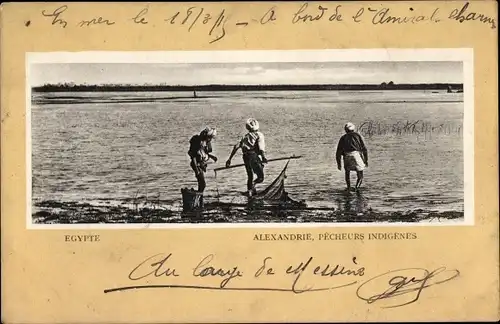 En mer le 18/3/15 - A bord de l'Amiral Charner
EGYPTE
ALEXANDRIE, PÊCHEURS INDIGÈNES
Au large de Messine